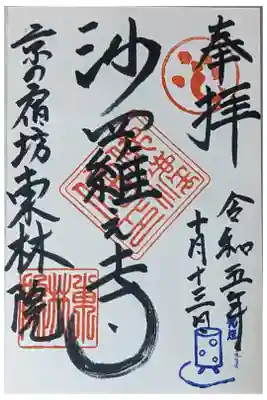 奉拝
令和五年
十月十三日
沙羅の寺
京の宿坊東林院